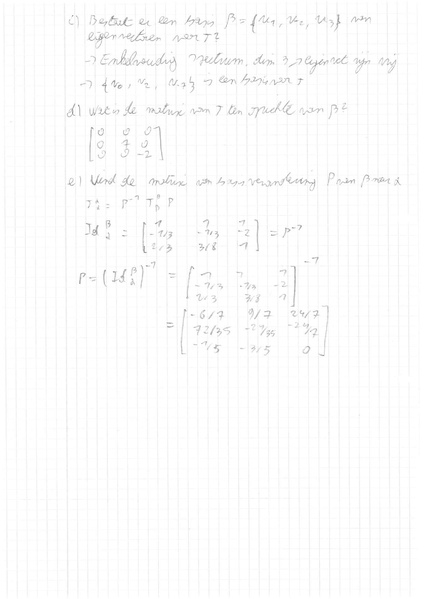 c) Bestaat er een basis β = {v1, v2, v3} van
eigenvectoren voor T?
→ Enkelvoudig spectrum, dim 3, 3 eigenvect zijn vrij
→ {v0, v2, v-7} → een basis voor T
d) Wat is de matrix van T ten opzichte van β?
[0 0 0
0 7 0
0 0 -2]
e) Vind de matrix van basisverandering P van β naar α
= P⁻¹ T P
Id = [1 1 1
-1/3 -1/3 -2
2/3 3/8 1] = P⁻¹
P = (Id)⁻¹ = [1 1 1
-1/3 -1/3 -2
2/3 3/8 1]⁻¹
= [-6/7 9/7 24/7
72/35 -24/7
-1/5 -3/5 0]